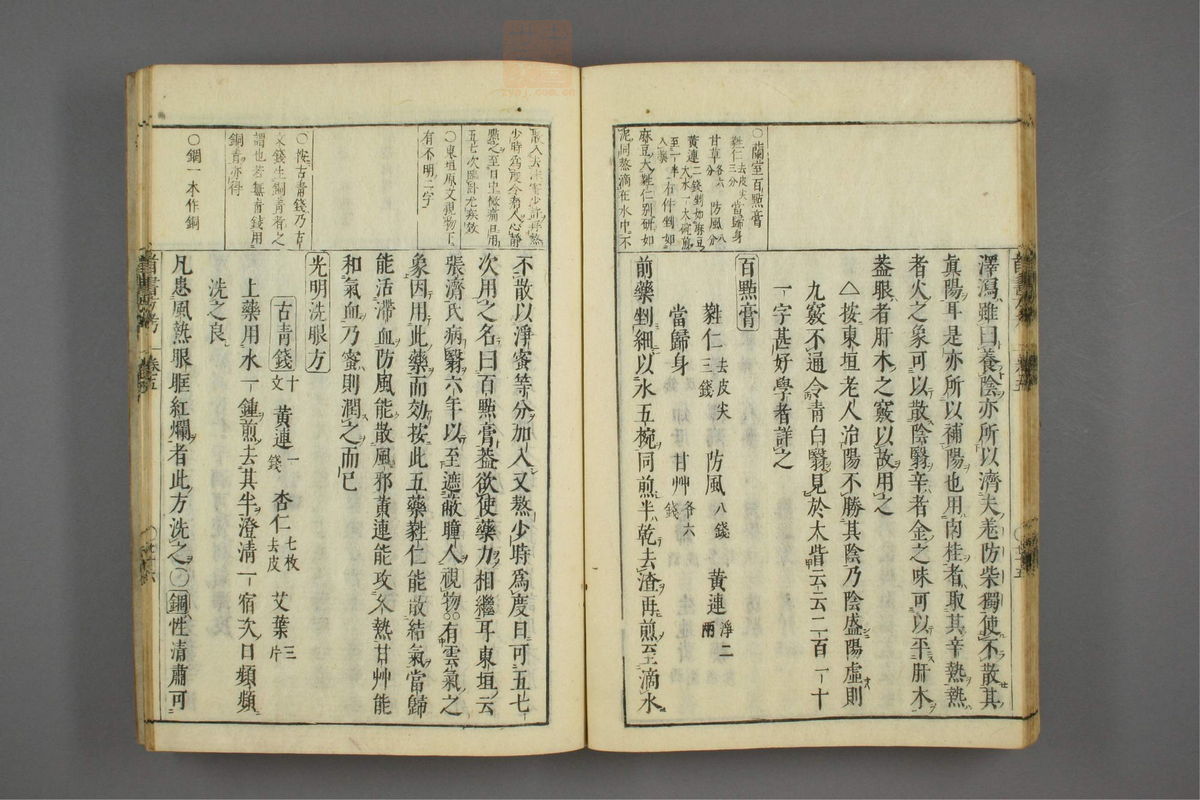 澤瀉雖曰養陰亦所以濟夫羌防柴獨使不散其
眞陽耳是亦所以補陽也用肉桂者取其辛熱熱
者火之象可以散陰翳辛者金之味可以平肝木
葢眼者肝木之竅以故用之
△按東垣老人治陽不勝其陰乃陰盛陽虛則
九竅不通令青白翳見於大眥云云二百一十
一字甚好學者詳之
○蘭室百點膏
蕤仁去皮尖三分 當歸身
甘草各六分 防風八分
黃連二錢剉如麻豆大水一大碗煎
至一半 右件剉如
麻豆大蕤仁別研如
泥同熬滴在水中不
百點膏
蕤仁去皮尖三錢 防風八錢 黃連淨二兩
當歸身 甘艸各六錢
前藥剉細以水五椀同煎半乾去渣再煎至滴水
散入去沫蜜少許再熬
少時爲度令病人心靜
點之至目中微痛日用
五七次臨臥尤疾效
○東垣原文視物下
有不明二字
不散以淨蜜等分加入又熬少時爲度日可五七
次用之名曰百點膏葢欲使藥力相繼耳東垣云
張濟氏病翳六年以至遮蔽瞳人視物○○有雲氣之
象因用此藥而効按此五藥蕤仁能散結氣當歸
能活滯血防風能散風邪黃連能攻久熱甘艸能
和氣血乃蜜則潤之而已
○按古青錢乃古
文錢生銅青者之
謂也若無青錢用
銅青亦得
光明洗眼方
古青錢十文 黃連一錢 杏仁七枚去皮 艾葉三片
上藥用水一鍾煎去其半澄清一宿次日頻頻
洗之良
○鋼一本作銅
凡患風熱眼眶紅爛者此方洗之○鋼性清肅可